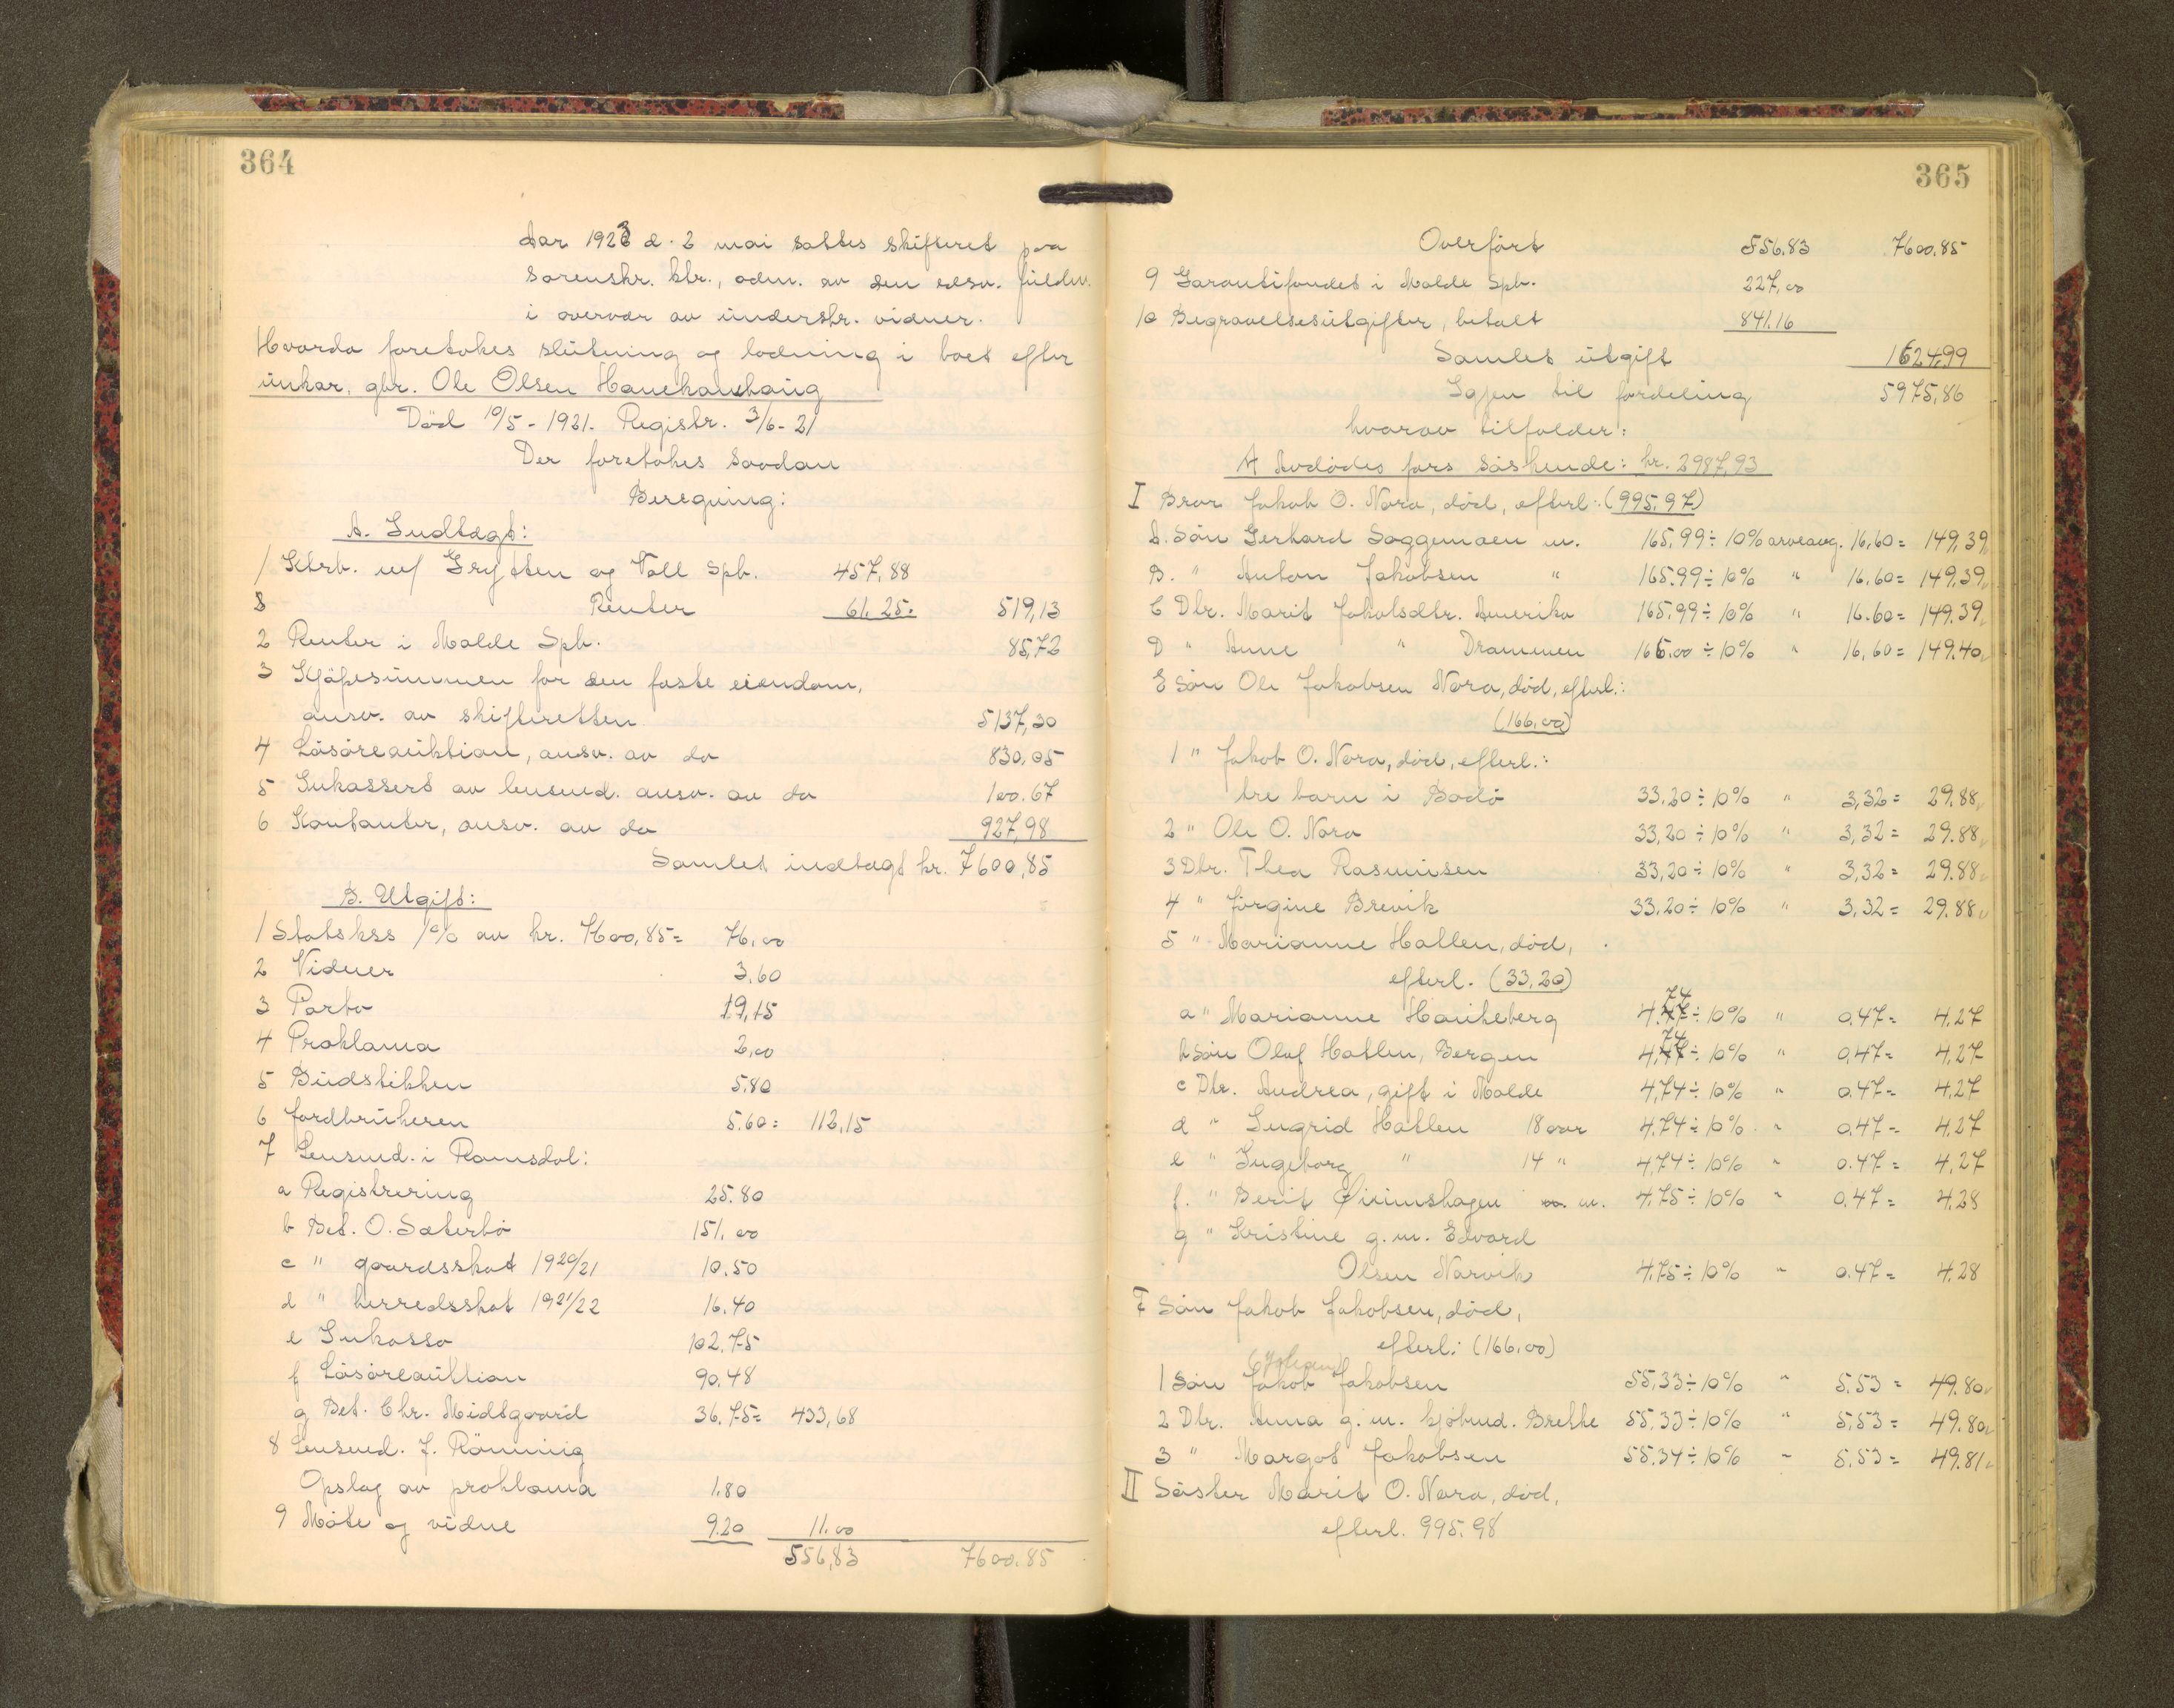 364
Aar 1923 d. 2 mai sattes skifteret paa
sorenskr. ktr., adm. av den edsv. fuldm.
i overvær av underskr. vidner.
Hvorda foretokes slutning og lodning i boet efter
unkar. gbr. Ole Olsen
Død 10/5-1921. Registr. 3/6-21
Der foretokes saadan
Beregning:
A. Indtægt:
1 Ktrb. m/ Grytten og Voll Spb. 457,88
Renter 61.25= 519,13
2 Renter i Molde Spb. 85,72
3 Kjøpesummen for den faste eiendom,
ansv. av skifteretten 5137,30
4 Løsøreauktion, ansv. av do 830,05
5 Inkassert av lensmd. ansv. av do 100.67
6 Kontanter, ansv. av do 927,98
Samlet indtægt kr. 7600,85
B. Utgift:
1 Statskss 1% av kr. 7600,85= 76,00
2 Vidner 3.60
3 Porto 19,15
4 Proklama 2,00
5 Budstikken 5.80
6 Jordbrukeren 5.60= 112,15
7 Lensmd. i Romsdal:
a Registrering 25.80
b Bet. O. Sæterbø 151.00
c " gaardsskat 1920/21 10.50
d " herredsskat 1921/22 16.40
e Inkasso 102.75
f Løsøreauktion 90.48
g Bet. Chr. Midtgaard 36.75= 433,68
8 Lensmd. J. Rønning
Opslag av proklama 1.80
9 Møte og vidne 9.20 11.00
556,83 7600.85
365
Overført 556.83 7600.85
9 Garantifondet i Molde Spb. 227,00
10 Begravelsesutgifter, betalt 841.16
Samlet utgift 1624,99
Igjen til fordeling 5975,86
hvorav tilfalder:
A Avdødes fars søskende: kr. 2987,93
I Bror Jakob O. Nora, død, efterl: (995,97)
A. Søn Gerhard Soggemoen m. 165,99÷10% arveavg. 16,60= 149,39
B. " Anton Jakobsen " 165.99÷10% " 16.60= 149,39
C Dtr. Marit Jakobsdtr. Amerika 165.99÷10% " 16.60= 149.39
D " Anne " Drammen 166.00÷10% " 16,60= 149.40
E Søn Ole Jakobsen Nora, død, efterl.:
(166,00)
1 " Jakob O. Nora, død, efterl.:
tre barn i Bodø 33.20÷10% " 3,32= 29.88
2 " Ole O. Nora 33,20÷10% " 3,32= 29.88
3 Dtr. Thea Rasmussen 33,20÷10% " 3,32= 29.88
4 " Jørgine Brevik 33.20÷10% " 3,32= 29.88
5 " Marianne Hatlen, død,
efterl. (33,20)
a " Marianne Haukeberg 4.74÷10% " 0.47= 4.27
b Søn Olaf Hatlen, Bergen 4.74÷10% " 0,47= 4,27
c Dtr. Andrea, gift i Molde 4,74÷10% " 0.47= 4.27
d " Ingrid Hatlen 18 aar 4.74÷10% " 0.47= 4,27
e " Ingeborg " 14 " 4,74÷10% " 0.47= 4,27
f. " Berit m. 4.75÷10% " 0.47= 4.28
g " Kristine g. m. Edvard
Olsen Narvik 4.75÷10% " 0.47= 4.28
F Søn Jakob Jakobsen, død,
efterl: (166.00)
1 Søn Jakob Jakobsen 55,33÷10% " 5.53= 49.80
2 Dtr. Anna g. m. kjøbmd. Brekke 55.33÷10% " 5,53= 49.80
3 " Margot Jakobsen 55.34÷10% " 5.53= 49.81
II Søster Marit O. Nora, død,
efterl. 995.98